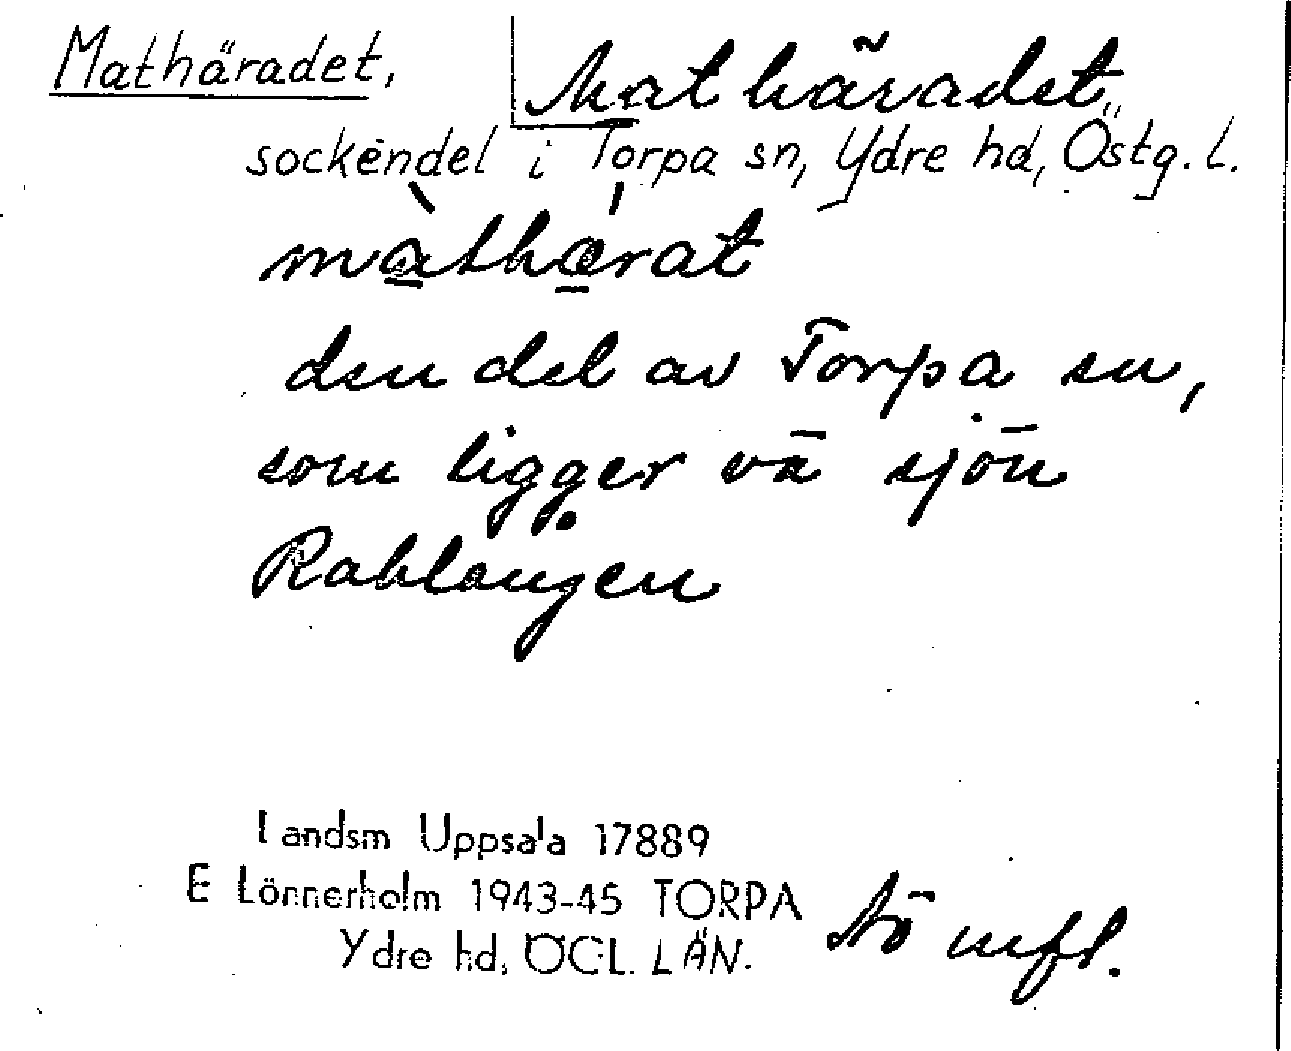 Mathäradet,
Mathäradet
sockendel i Torpa sn, Ydre hd, Östg. l.
màthærat
den del av Torpa sn,
som ligger vä sjön
Rablången
Landsm Uppsala 17889
E Lönnerholm 1943-45 TORPA
Ydre hd, ÖGL. LÄN.
mfl.